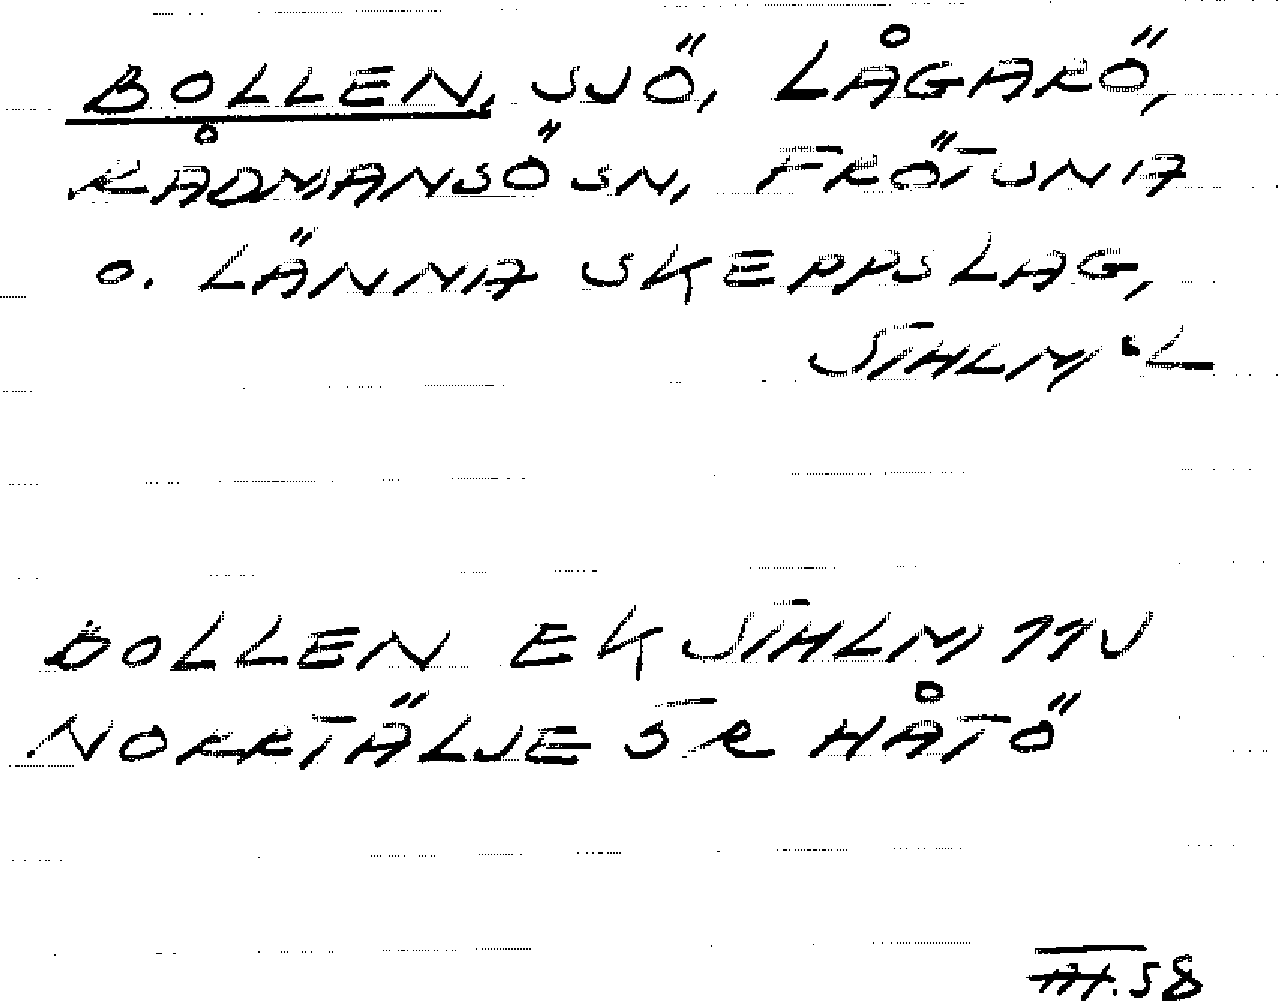 BOLLEN, SJÖ, LÅGARÖ,
RÅDMANSÖ SN, FRÖTUNA
O. LÄNNA SKEPPSLAG,
STHLM:L
BOLLEN EK STHLM 11V
NORRTÄLJE SR HÅTÖ